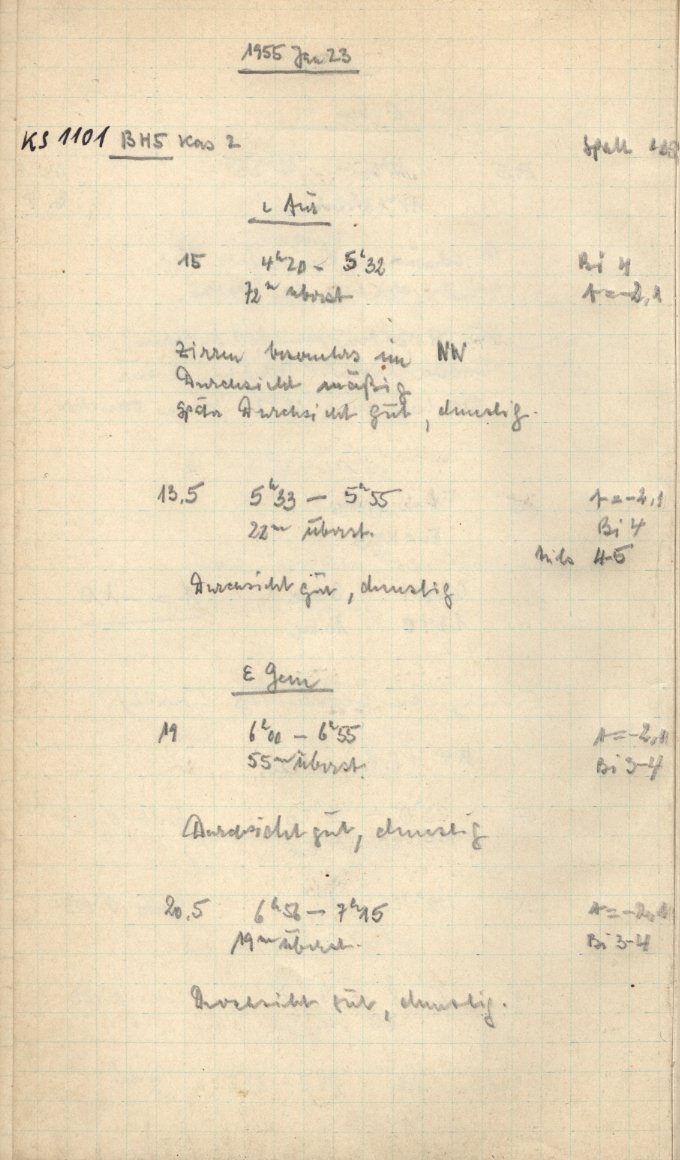 1955 Jan 23
KS 1101 BH5 Kas 2 Spalt
ι Aur
15 4ʰ20 – 5ʰ32 Bi 4
72ᵐ überst. t=-2,1
Zirren besonders im NW
Durchsicht mäßig
später Durchsicht gut, dunstig.
13,5 5ʰ33 – 5ʰ55 t=-2,1
22ᵐ überst. Bi 4
teils 4-5
Durchsicht gut, dunstig
ε Gem
19 6ʰ00 – 6ʰ55 t=-2,1
55ᵐ überst. Bi 3-4
Durchsicht gut, dunstig
20,5 6ʰ56 – 7ʰ15 t=-2,1
19ᵐ überst. Bi 3-4
Durchsicht gut, dunstig.